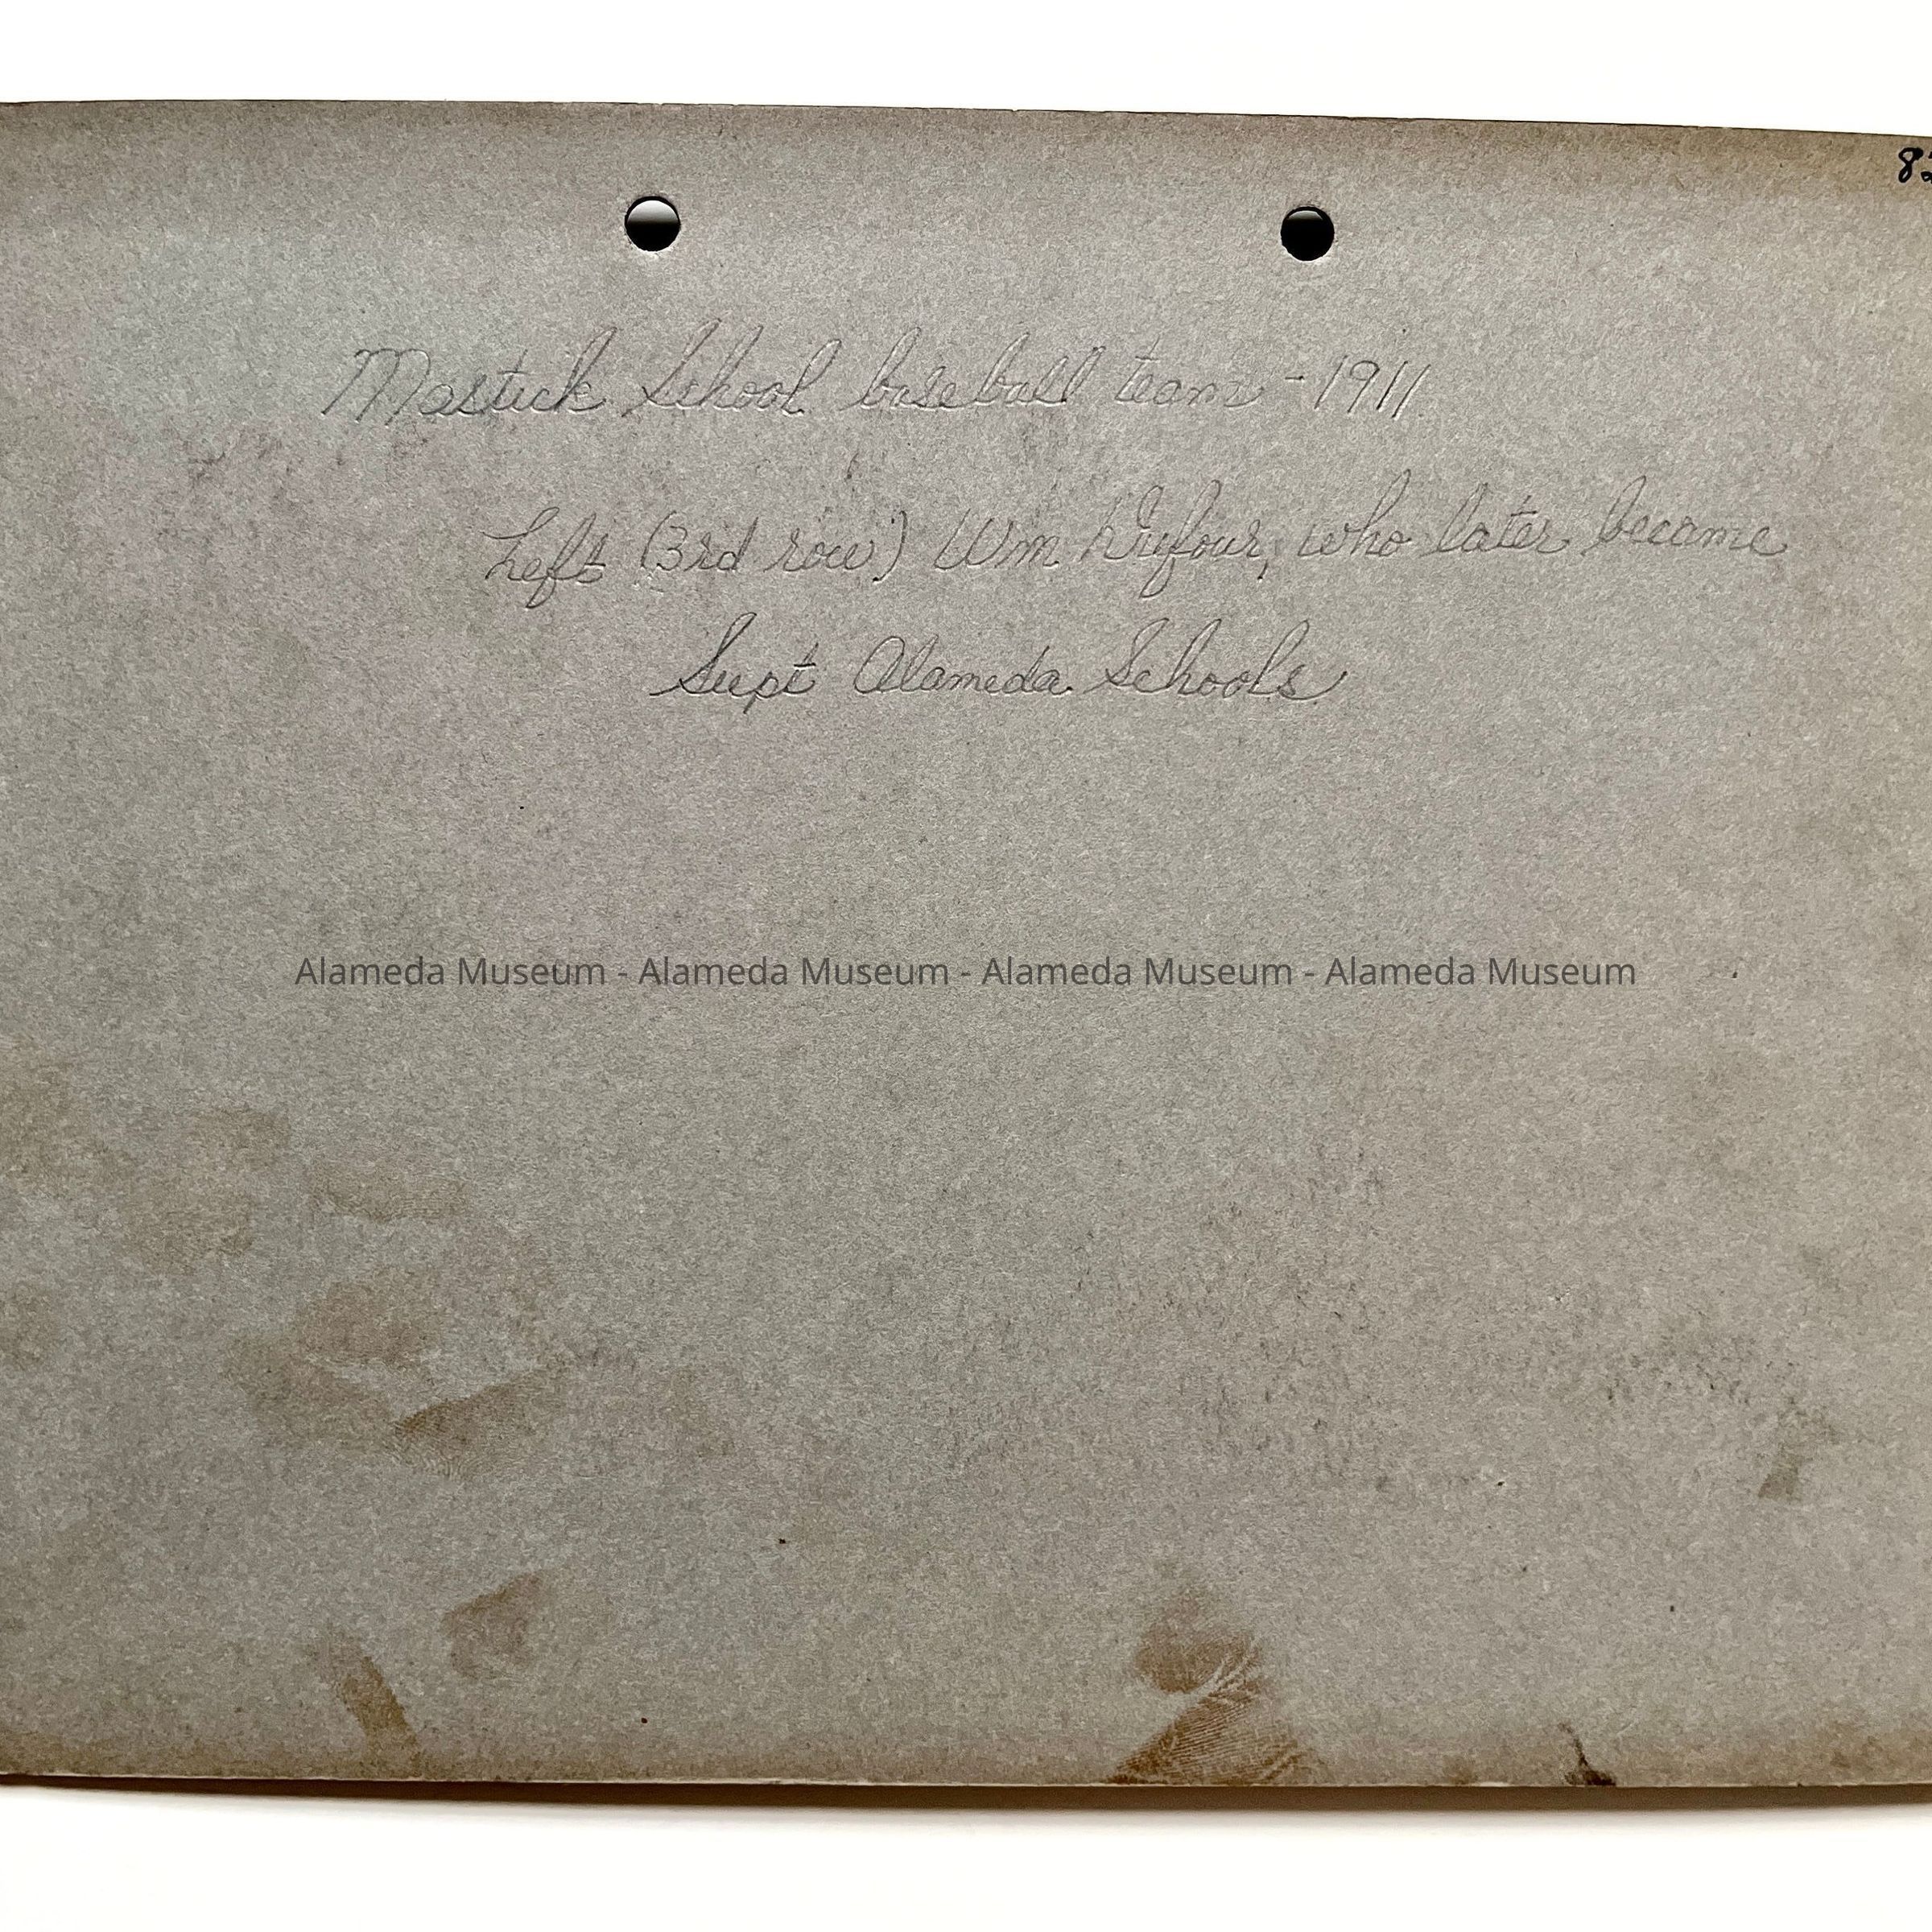 Mastick School baseball team - 1911
Left (3rd row) Wm Dufour, who later became
Supt Alameda Schools
Alameda Museum - Alameda Museum - Alameda Museum - Alameda Museum